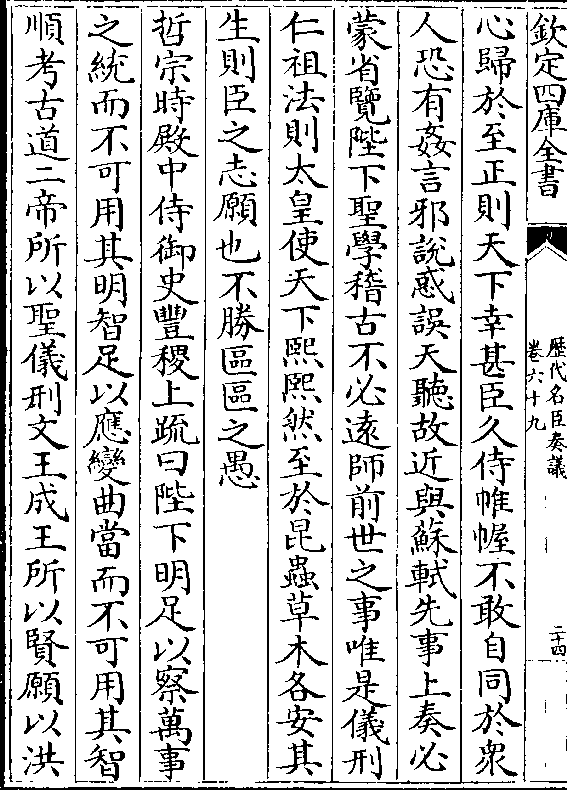 欽定四庫全書
歷代名臣奏議
卷六十九
二十四
心歸於至正則天下幸甚臣久侍帷幄不敢自同於衆
人恐有姦言邪說惑誤天聽故近與蘇軾先事上奏必
蒙省覽陛下聖學稽古不必遠師前世之事唯是儀刑
仁祖法則太皇使天下熙熙然至於昆蟲草木各安其
生則臣之志願也不勝區區之愚
哲宗時殿中侍御史豐稷上疏曰陛下明足以察萬事
之統而不可用其明智足以應變曲當而不可用其智
順考古道二帝所以聖儀刑文王成王所以賢願以洪